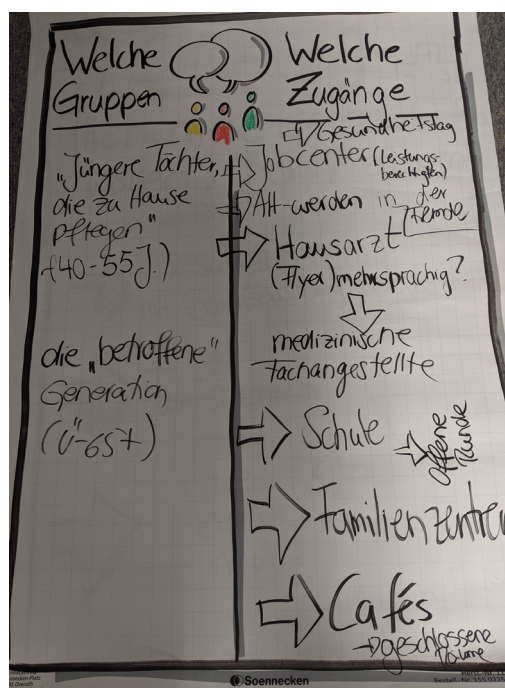 Welche
Gruppen
Welche
Zugänge
"Jüngere Töchter,
die zu Hause
pflegen"
(40-55 J.)
die "betroffene"
Generation
(Ü-65+)
Gesundheitstag
Jobcenter (Leistungs-
berechtigten)
Alt-werden in der
Fremde
Hausarzt
(Flyer) mehrsprachig?
medizinische
Fachangestellte
Schule
Offene
Runde
Familienzentren
Cafés
geschlossene
Räume
Soennecken